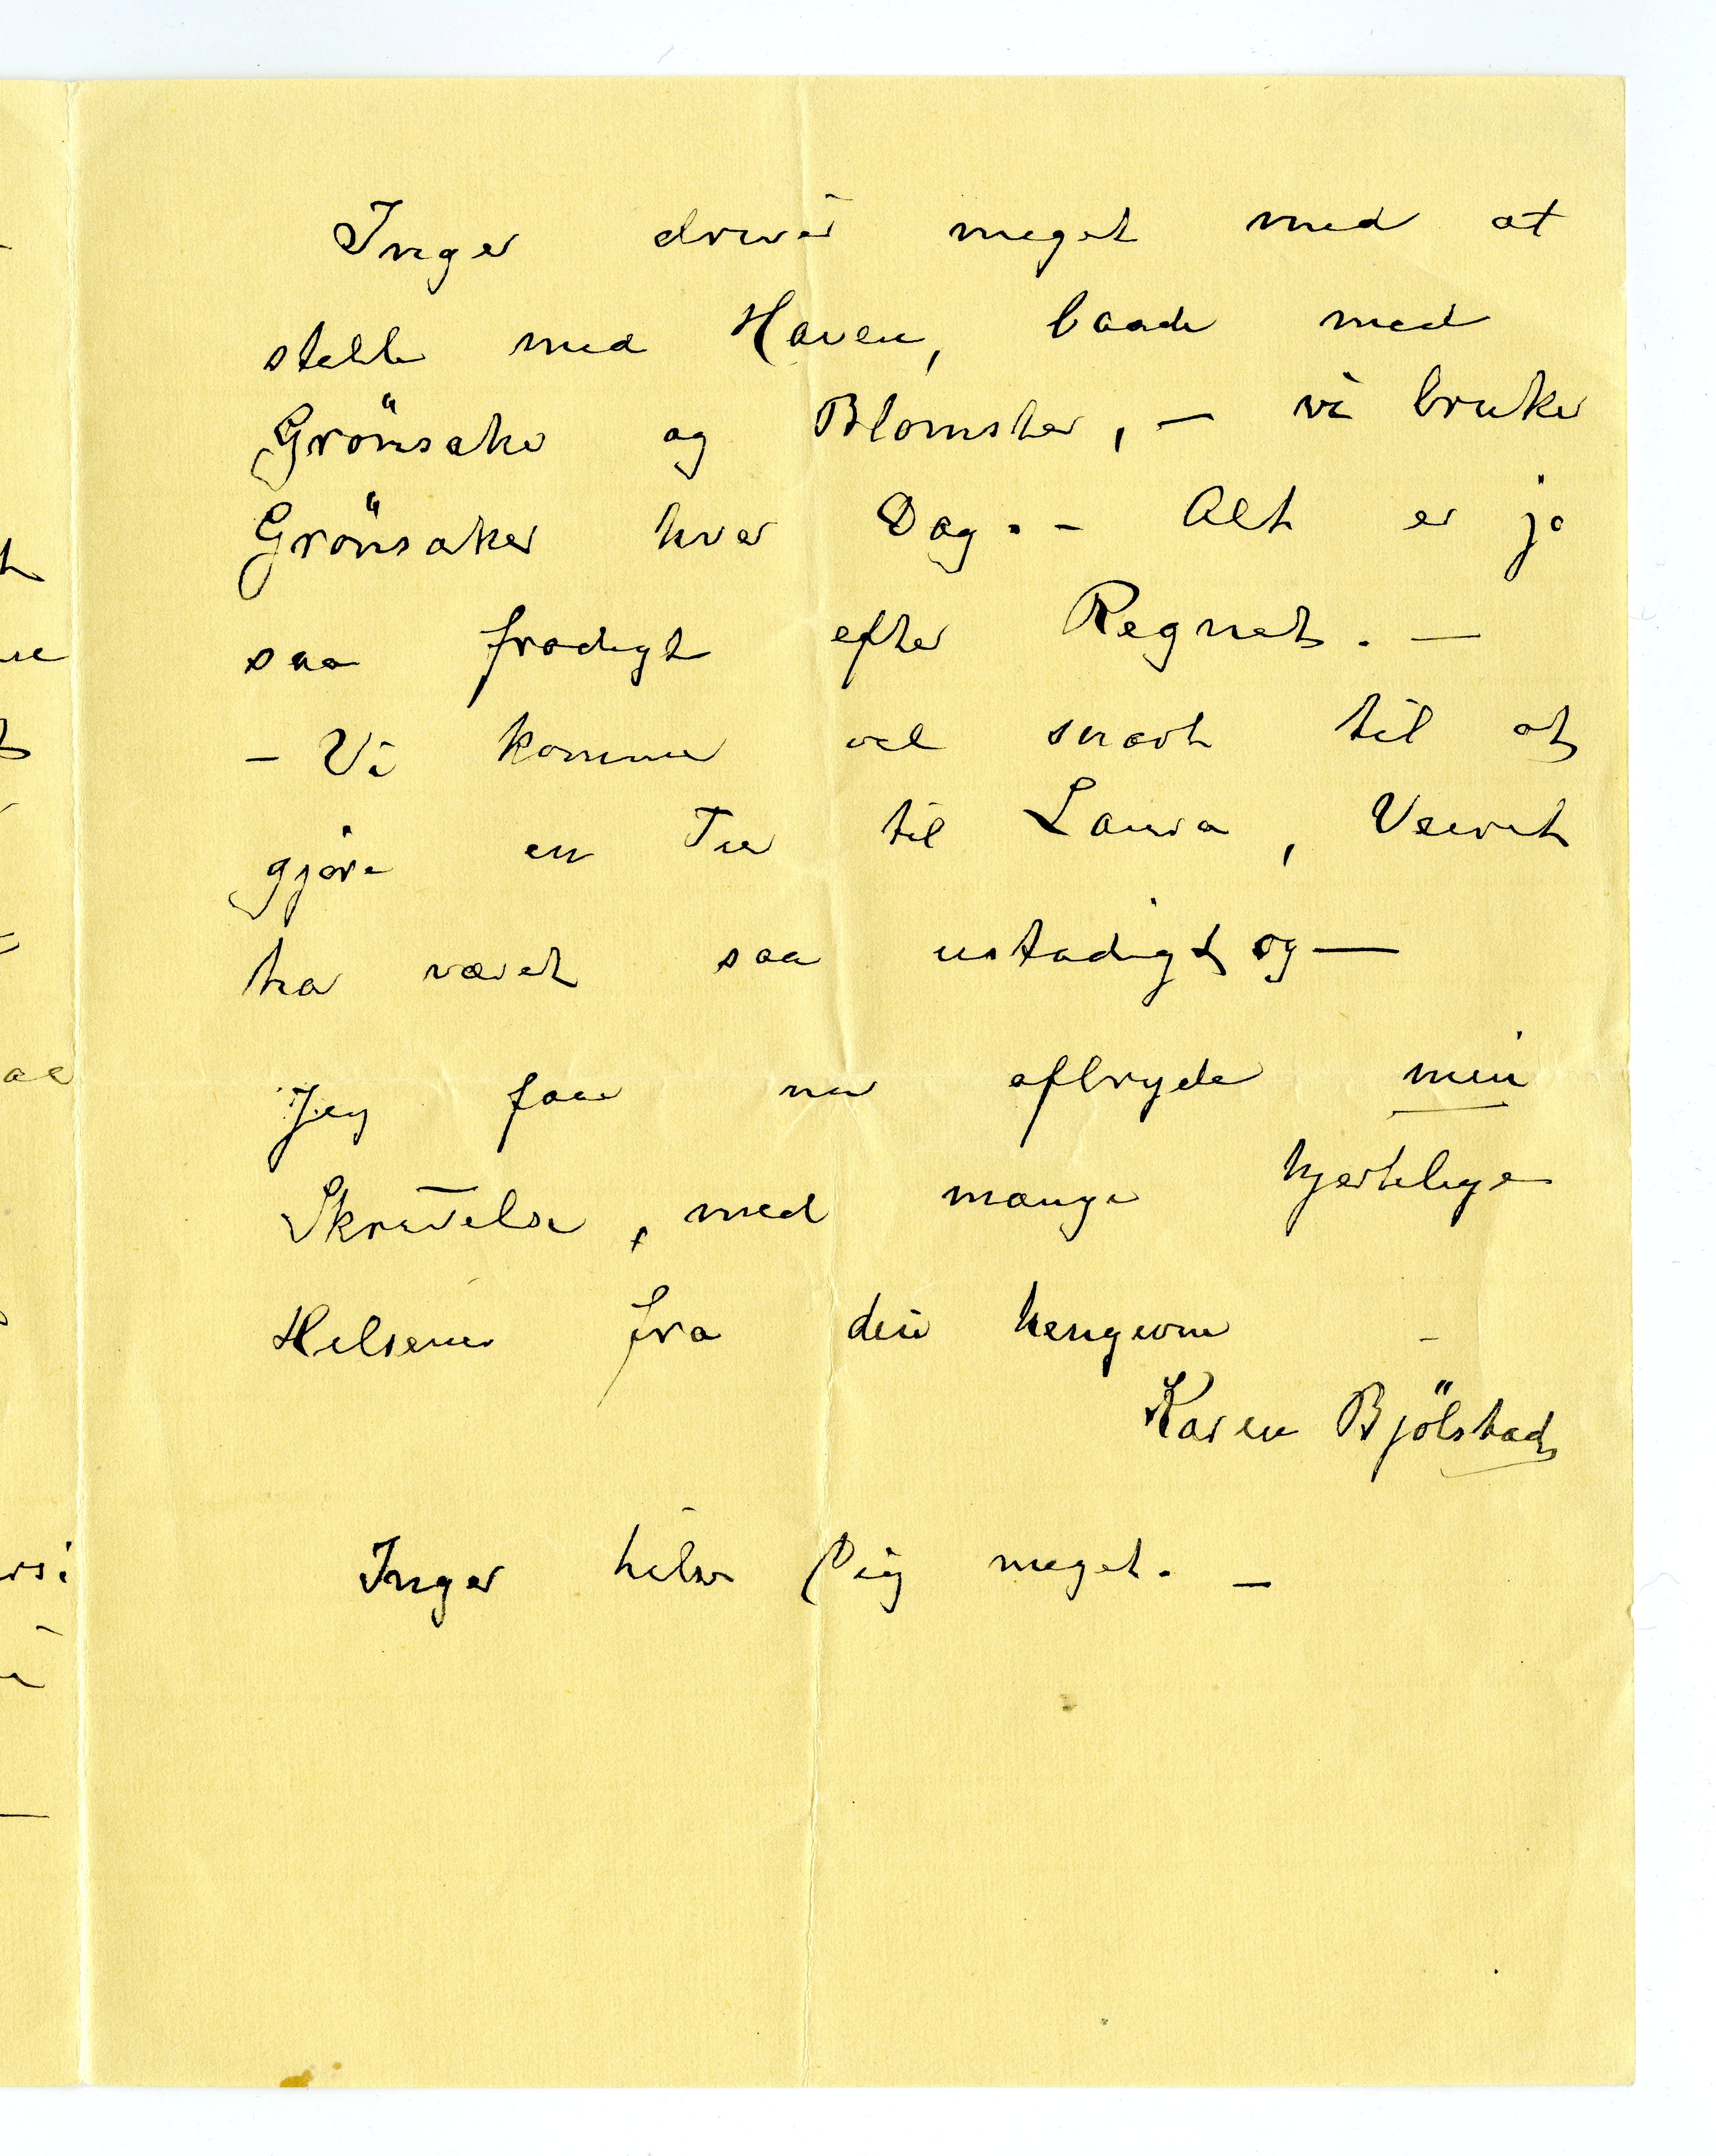 Inger driver meget med at
stelle med Haven, baade med
Grönsaker og Blomster, – vi bruker
Grönsaker hver Dag. – Alt er jo
saa frodigt efter Regnet. —
– Vi kommer vel snart til at
gjøre en Tur til Laura, Veiret
har været saa ustadigt og —
Jeg faar nu afbryde min
Skrivelse, med mange hjertelige
Hilsener fra din hengivne –
Karen Bjölstad
Inger hilser Dig meget. –